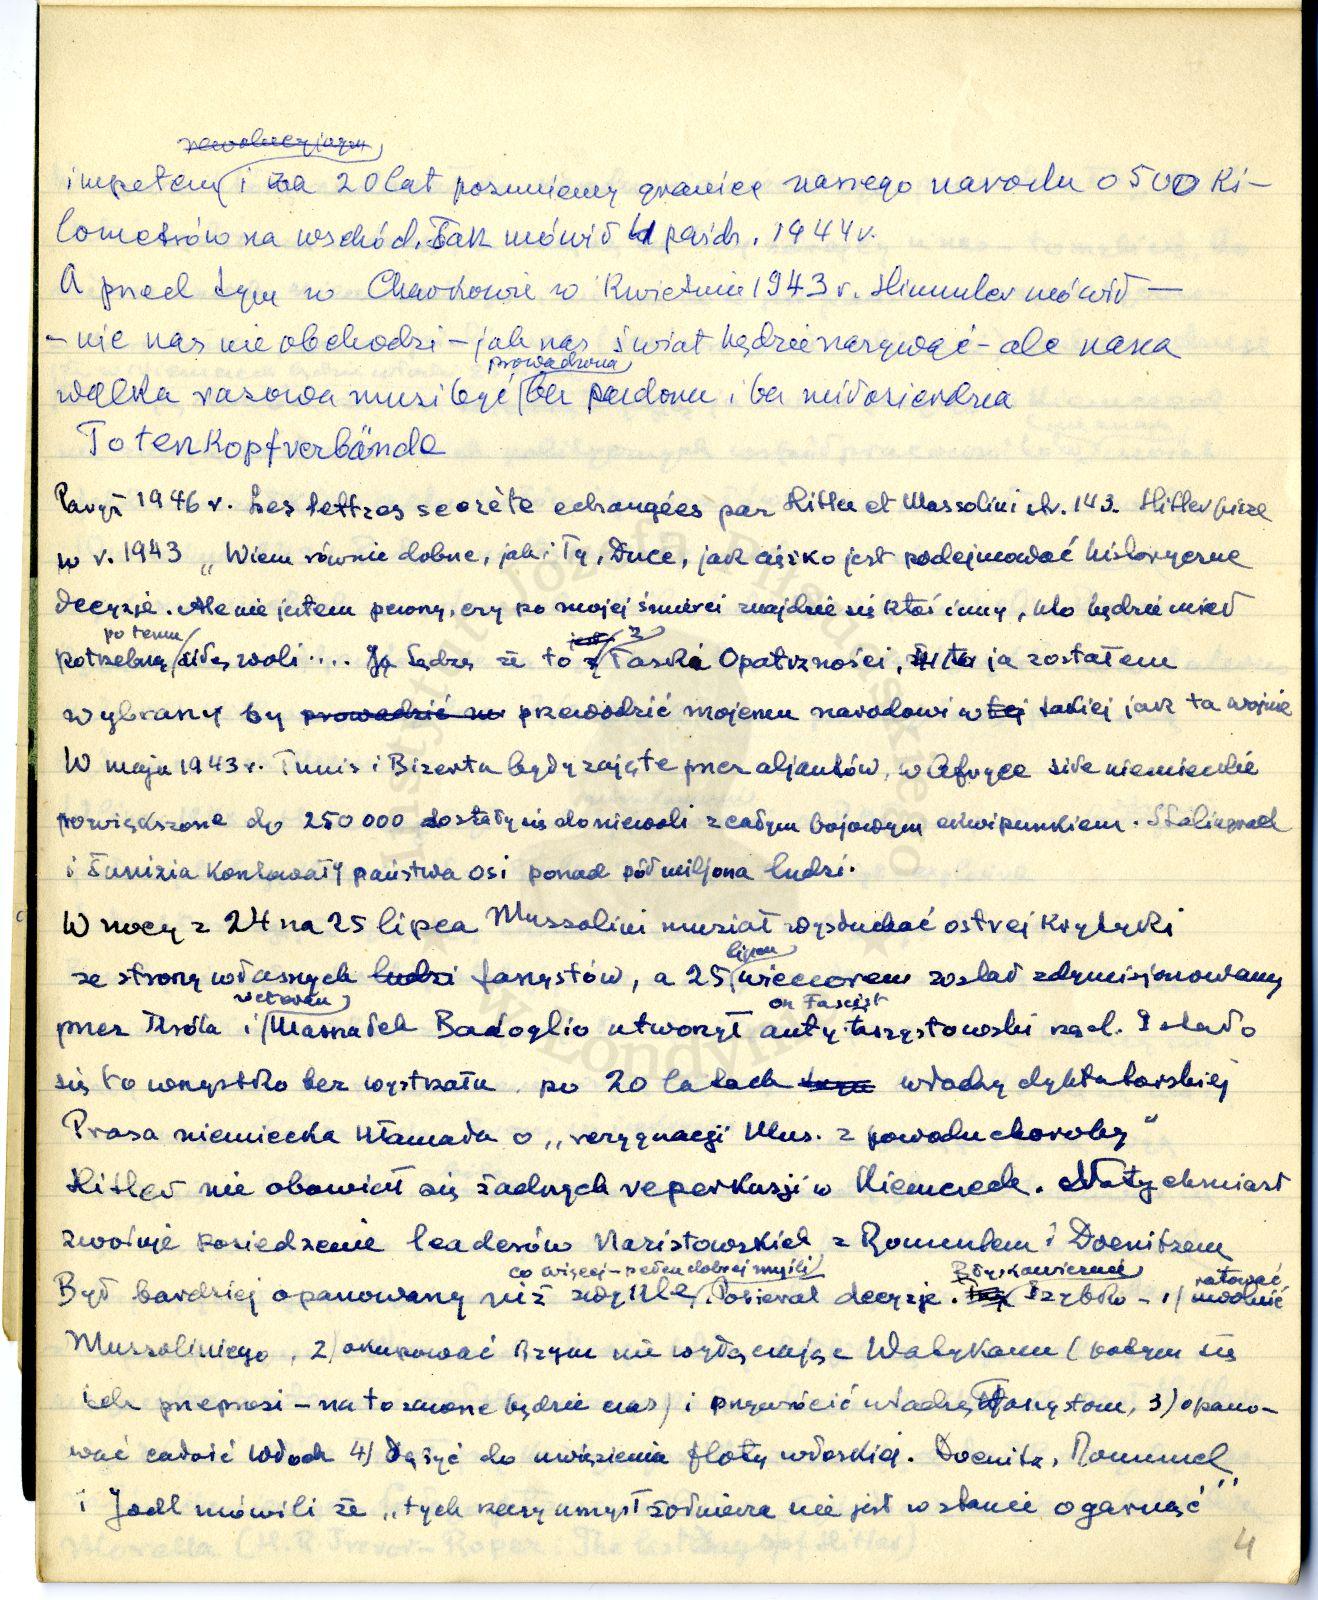 rewolucyjnym
impetem i za 20 lat posuniemy granicę naszego narodu o 500 ki-
lometrów na wschód. Tak mówił paźdz. 1944 r.
A przed tym w Charkowie w kwietniu 1943 r. Himmler mówił —
- nic nas nie obchodzi - jak nas świat będzie nazywać - ale nasza
prowadzona
walka rasowa musi być bez pardonu i bez miłosierdzia
Totenkopfverbände
Paryż 1946 r. Les lettres secrète echangées par Hitler et Mussolini str. 143. Hitler pisze
w r. 1943 „Wiem równie dobrze, jak i Ty, Duce, jak ciężko jest podejmować historyczne
decyzje. Ale nie jestem pewny, czy po mojej śmierci znajdzie się ktoś inny, kto będzie miał
po temu jest z
potrzebną siłę woli .... Ja sądzę że to łaska Opatrzności, ja zostałem
wybrany by prowadzić przewodzić mojemu narodowi w tej takiej jak ta wojnie
W maju 1943 r. Tunis i Bizerta były zajęte przez aljantów, w Afryce siłe niemieckie
powiększone do 250 000 dostały się do niewoli z całym bojowym ekwipunkiem. Stalingrad
i Tunizia kosztowały państwa osi ponad pół miljona ludzi.
W nocy z 24 na 25 lipca Mussolini musiał wysłuchać ostrej krytyki
lipca
ze strony własnych ludzi faszystów, a 25 wieczorem został zdymisjonowany
weteran on Fascist
przez Króla i Marszałek Badoglio utworzył anty-faszystowski rząd. I stało
się to wszystko bez wystrzału po 20 latach władzy dyktatorskiej
Prasa niemiecka kłamała o „rezygnacji Mus. z powodu choroby"
Hitler nie obawiał się żadnych reperkusji w Niemczech. Natychmiast
zwołuje posiedzenie leaderów Nazistowskich z Rommlem i Doenitzem
co więcej - pełen dobrej myśli Błyskawicznie ratować
Był bardziej opanowany niż zwykle. Powierał decyzje. Szybko - 1/ uwolnić
Mussoliniego, 2/ okupować Rzym nie wyłączając Watykanu (potym się
ich przeprosi - na to zawsze będzie czas) i przywrócić władzę faszystom, 3) opano-
wać całość Włoch 4/ Dążyć do uwięzienia floty włoskiej. Doenitz, Rommel
i Jodl mówili że „tych rzeczy umysł żołnierza nie jest w stanie ogarnąć"
4
Instytut Józefa Piłsudskiego
w Londynie